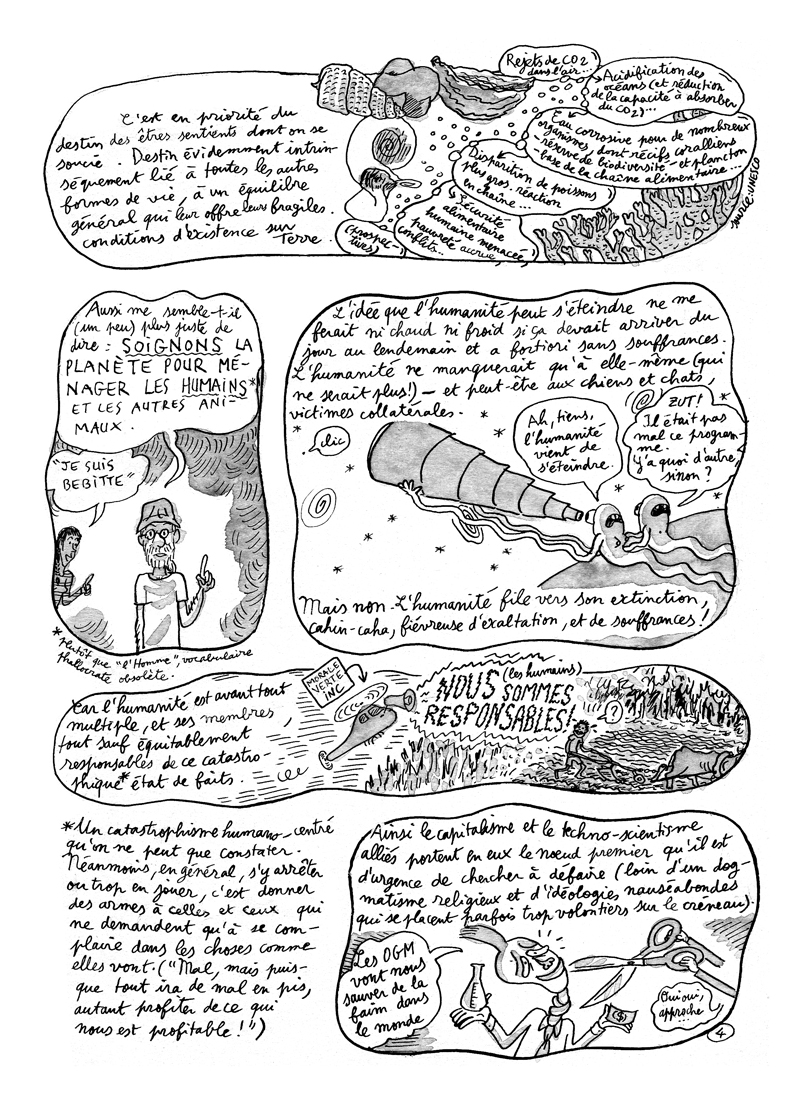 C'est en priorité du
destin des êtres sentients dont on se
soucie. Destin évidemment intrin-
séquement lié à toutes les autres
formes de vie, à un équilibre
général qui leur offre leurs fragiles
conditions d'existence sur
Terre.
Rejets de CO2
dans l'air...
Acidification des
océans (et réduction
de la capacité à absorber
du CO2)...
Eau corrosive pour de nombreux
organismes, dont récifs coralliens
- réserve de biodiversité - et plancton
- base de la chaîne alimentaire...
Disparition de poissons
plus gros, réaction
en chaîne...
Sécurité
alimentaire
humaine menacée,
pauvreté accrue,
conflits...
(prospec-
tives)
source: UNESCO
Aussi me semble-t-il
(un peu) plus juste de
dire : SOIGNONS LA
PLANÈTE POUR MÉ-
NAGER LES HUMAINS*
ET LES AUTRES ANI-
MAUX.
"JE SUIS
BEBITTE"
* Plutôt que "l'Homme", vocabulaire
phallocrate obsolète.
L'idée que l'humanité peut s'éteindre ne me
ferait ni chaud ni froid si ça devait arriver du
jour au lendemain et a fortiori sans souffrances.
L'humanité ne manquerait qu'à elle-même (qui
ne serait plus!) — et peut-être aux chiens et chats,
victimes collatérales.
clic
Ah, tiens,
l'humanité
vient de
s'éteindre.
ZUT!
Il était pas
mal ce program-
me.
Y'a quoi d'autre,
sinon ?
Mais non. L'humanité file vers son extinction,
cahin-caha, fiévreuse d'exaltation, et de souffrances !
Car l'humanité est avant tout
multiple, et ses membres,
tout sauf équitablement
responsables de ce catastro-
phique* état de faits.
MORALE
VERTE
INC
NOUS (les humains)
SOMMES
RESPONSABLES!
?
* Un catastrophisme humano-centré
qu'on ne peut que constater.
Néanmoins, en général, s'y arrêter
ou trop en jouer, c'est donner
des armes à celles et ceux qui
ne demandent qu'à se com-
plaire dans les choses comme
elles vont. ("Mal, mais puis-
que tout ira de mal en pis,
autant profiter de ce qui
nous est profitable !")
Ainsi le capitalisme et le techno-scientisme
alliés portent en eux le nœud premier qu'il est
d'urgence de chercher à défaire (loin d'un dog-
matisme religieux et d'idéologies nauséabondes
qui se placent parfois trop volontiers sur le créneau).
Les OGM
vont nous
sauver de la
faim dans
le monde
$
Oui oui,
approche
...
4